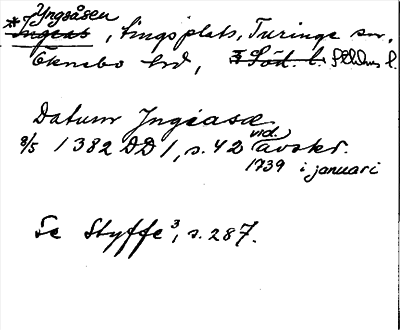 Yngsåsen
* Ingeas, tingsplats, Turinge sn,
Öknebo hd, S Söd. l. Sthlms l.
Datum Jngiasæ
8/5 1382 DD 1, s. 42 vid. avskr.
1739 i januari
Se Styffe³, s. 287.